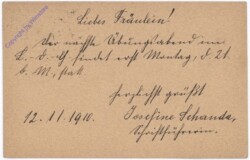 Liebes Fräulein!
Der nächste Übungsabend im
L. D. G findet erst Montag, d 21.
d. M, statt
herzlichst grüßt
12. 11. 1910. Josefine Schanda,
Schriftführerin.